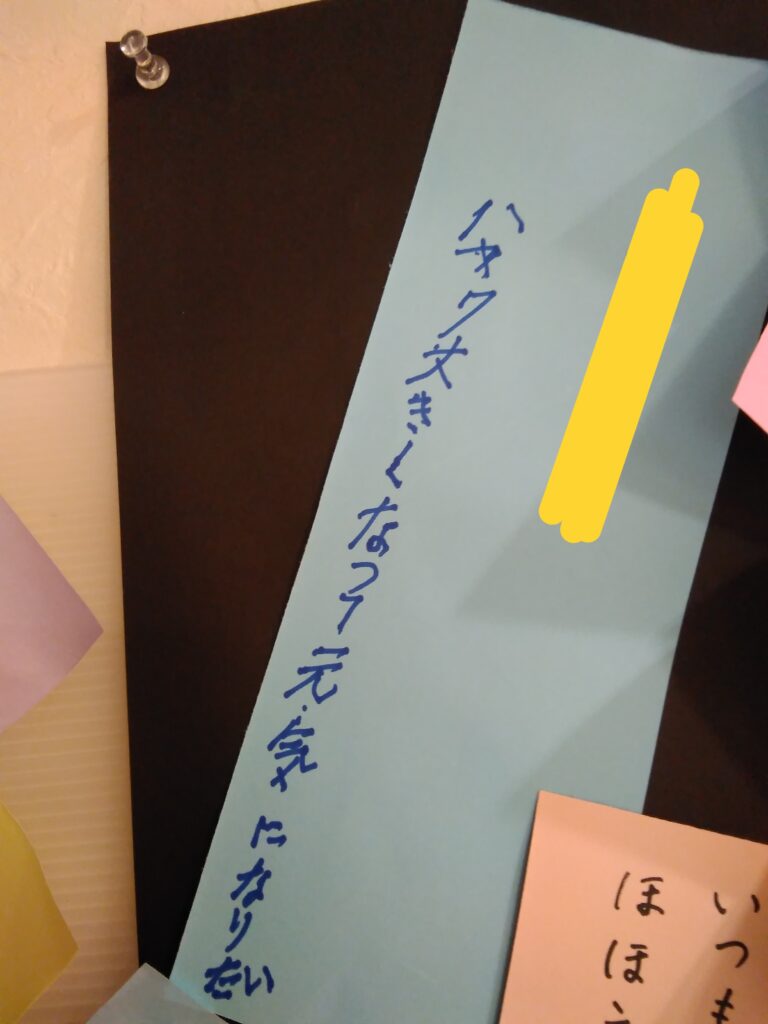 ハヤク大きくなって元気になりたい
いつも
ほほ